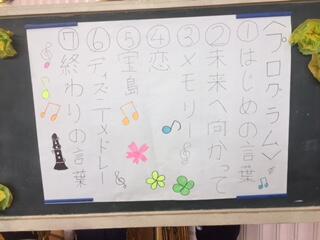 〈プログラム〉
①はじめの言葉
②未来へ向かって
③メモリー
④恋
⑤宝島
⑥ディズニーメドレー
⑦終わりの言葉